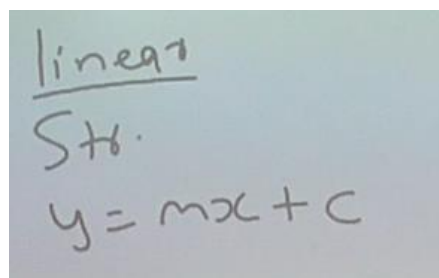 linear
Str.
y = mx + c